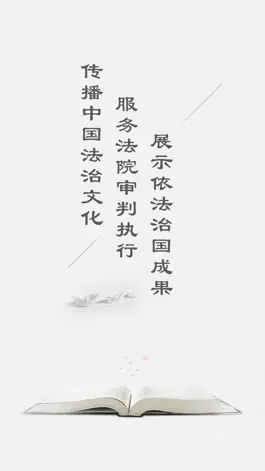 传播中国法治文化
服务法院审判执行
展示依法治国成果